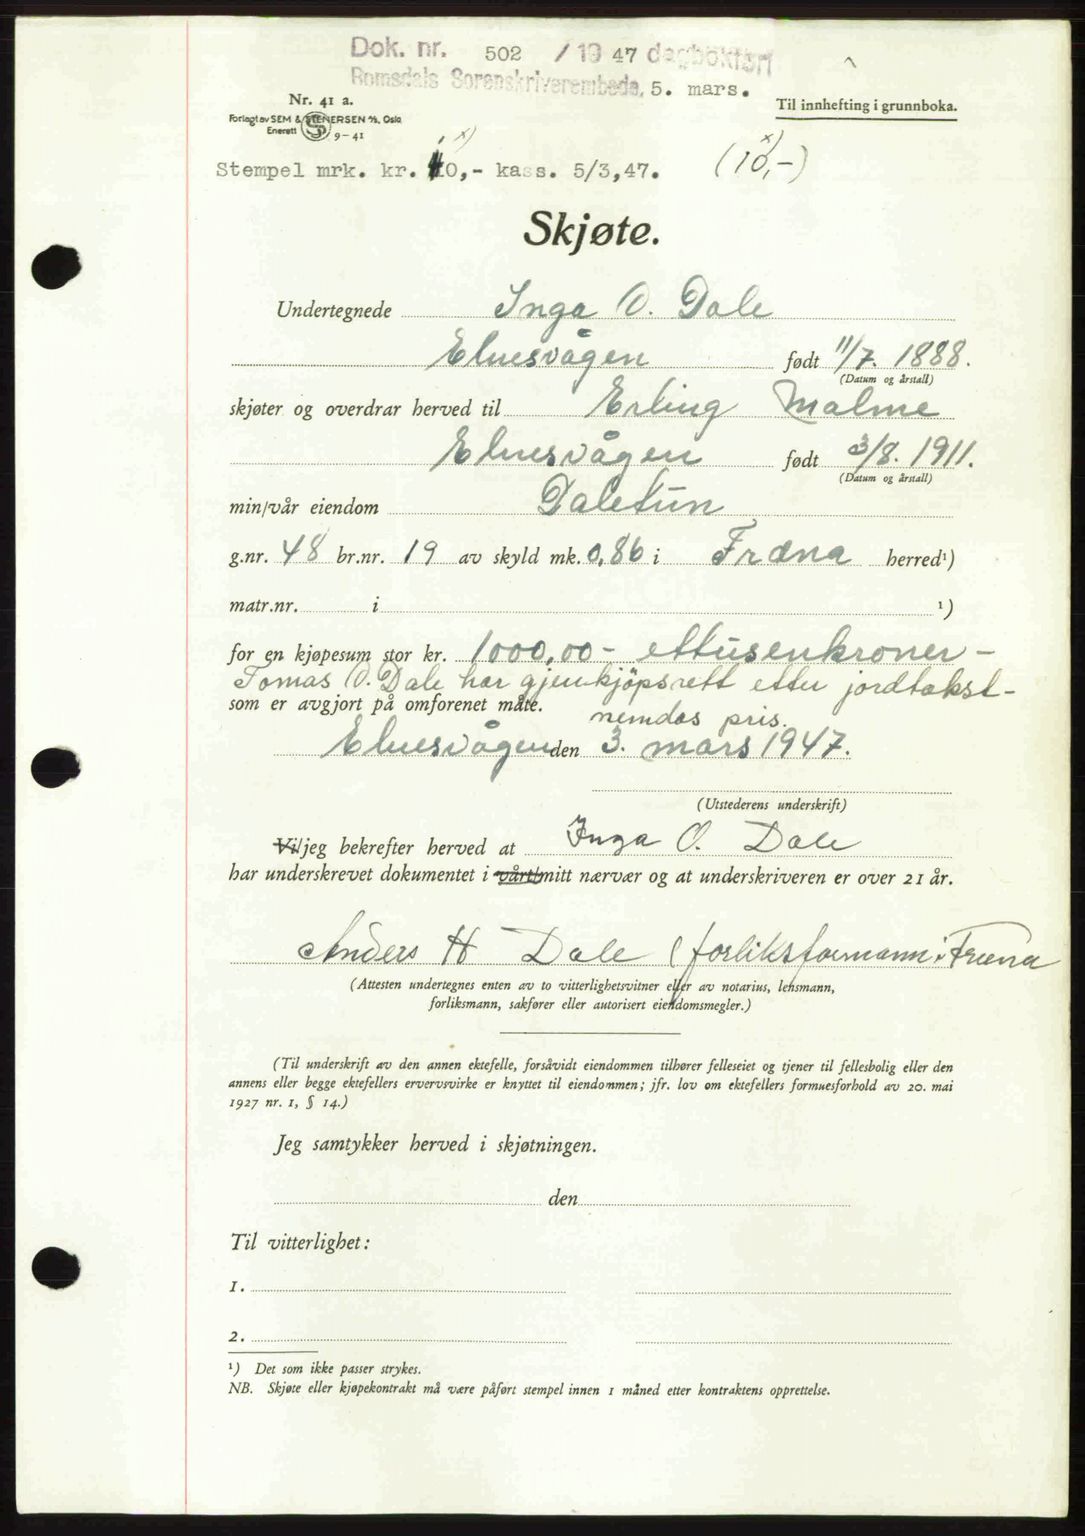 Dok. nr. 502 / 19 47 dagbokført
Romsdals Sorenskriverembede, 5. mars.
Nr. 41 a.
Til innhefting i grunnboka.
Forlagt av SEM & STENERSEN A/S, Oslo
Enerett 9-41
Stempel mrk. kr. 10,- kass. 5/3,47. (10,-) x)
Skjøte.
Undertegnede Inga O. Dale
Elnesvågen født 11/7. 1888.
(Datum og årstall)
skjøter og overdrar herved til Erling Malme
Elnesvågen født 3/8. 1911.
(Datum og årstall)
min/vår eiendom Daletun
g.nr. 48 br.nr. 19 av skyld mk. 0,86 i Fræna herred¹)
matr.nr. i ¹)
for en kjøpesum stor kr. 1000,00 - ettusenkroner -
Tomas O. Dale har gjenkjöpsrett etter jordtakst-
som er avgjort på omforenet måte.
nemdas pris.
Elnesvågen den 3. mars 1947.
(Utstederens underskrift)
Vi/jeg bekrefter herved at Inga O. Dale
har underskrevet dokumentet i vårt/mitt nærvær og at underskriveren er over 21 år.
Anders H Dale (forliksformann i Fræna
(Attesten undertegnes enten av to vitterlighetsvitner eller av notarius, lensmann,
forliksmann, sakfører eller autorisert eiendomsmegler.)
(Til underskrift av den annen ektefelle, forsåvidt eiendommen tilhører felleseiet og tjener til fellesbolig eller den
annens eller begge ektefellers ervervsvirke er knyttet til eiendommen; jfr. lov om ektefellers formuesforhold av 20. mai
1927 nr. 1, § 14.)
Jeg samtykker herved i skjøtningen.
den
Til vitterlighet:
1.
2.
¹) Det som ikke passer strykes.
NB. Skjøte eller kjøpekontrakt må være påført stempel innen 1 måned etter kontraktens opprettelse.